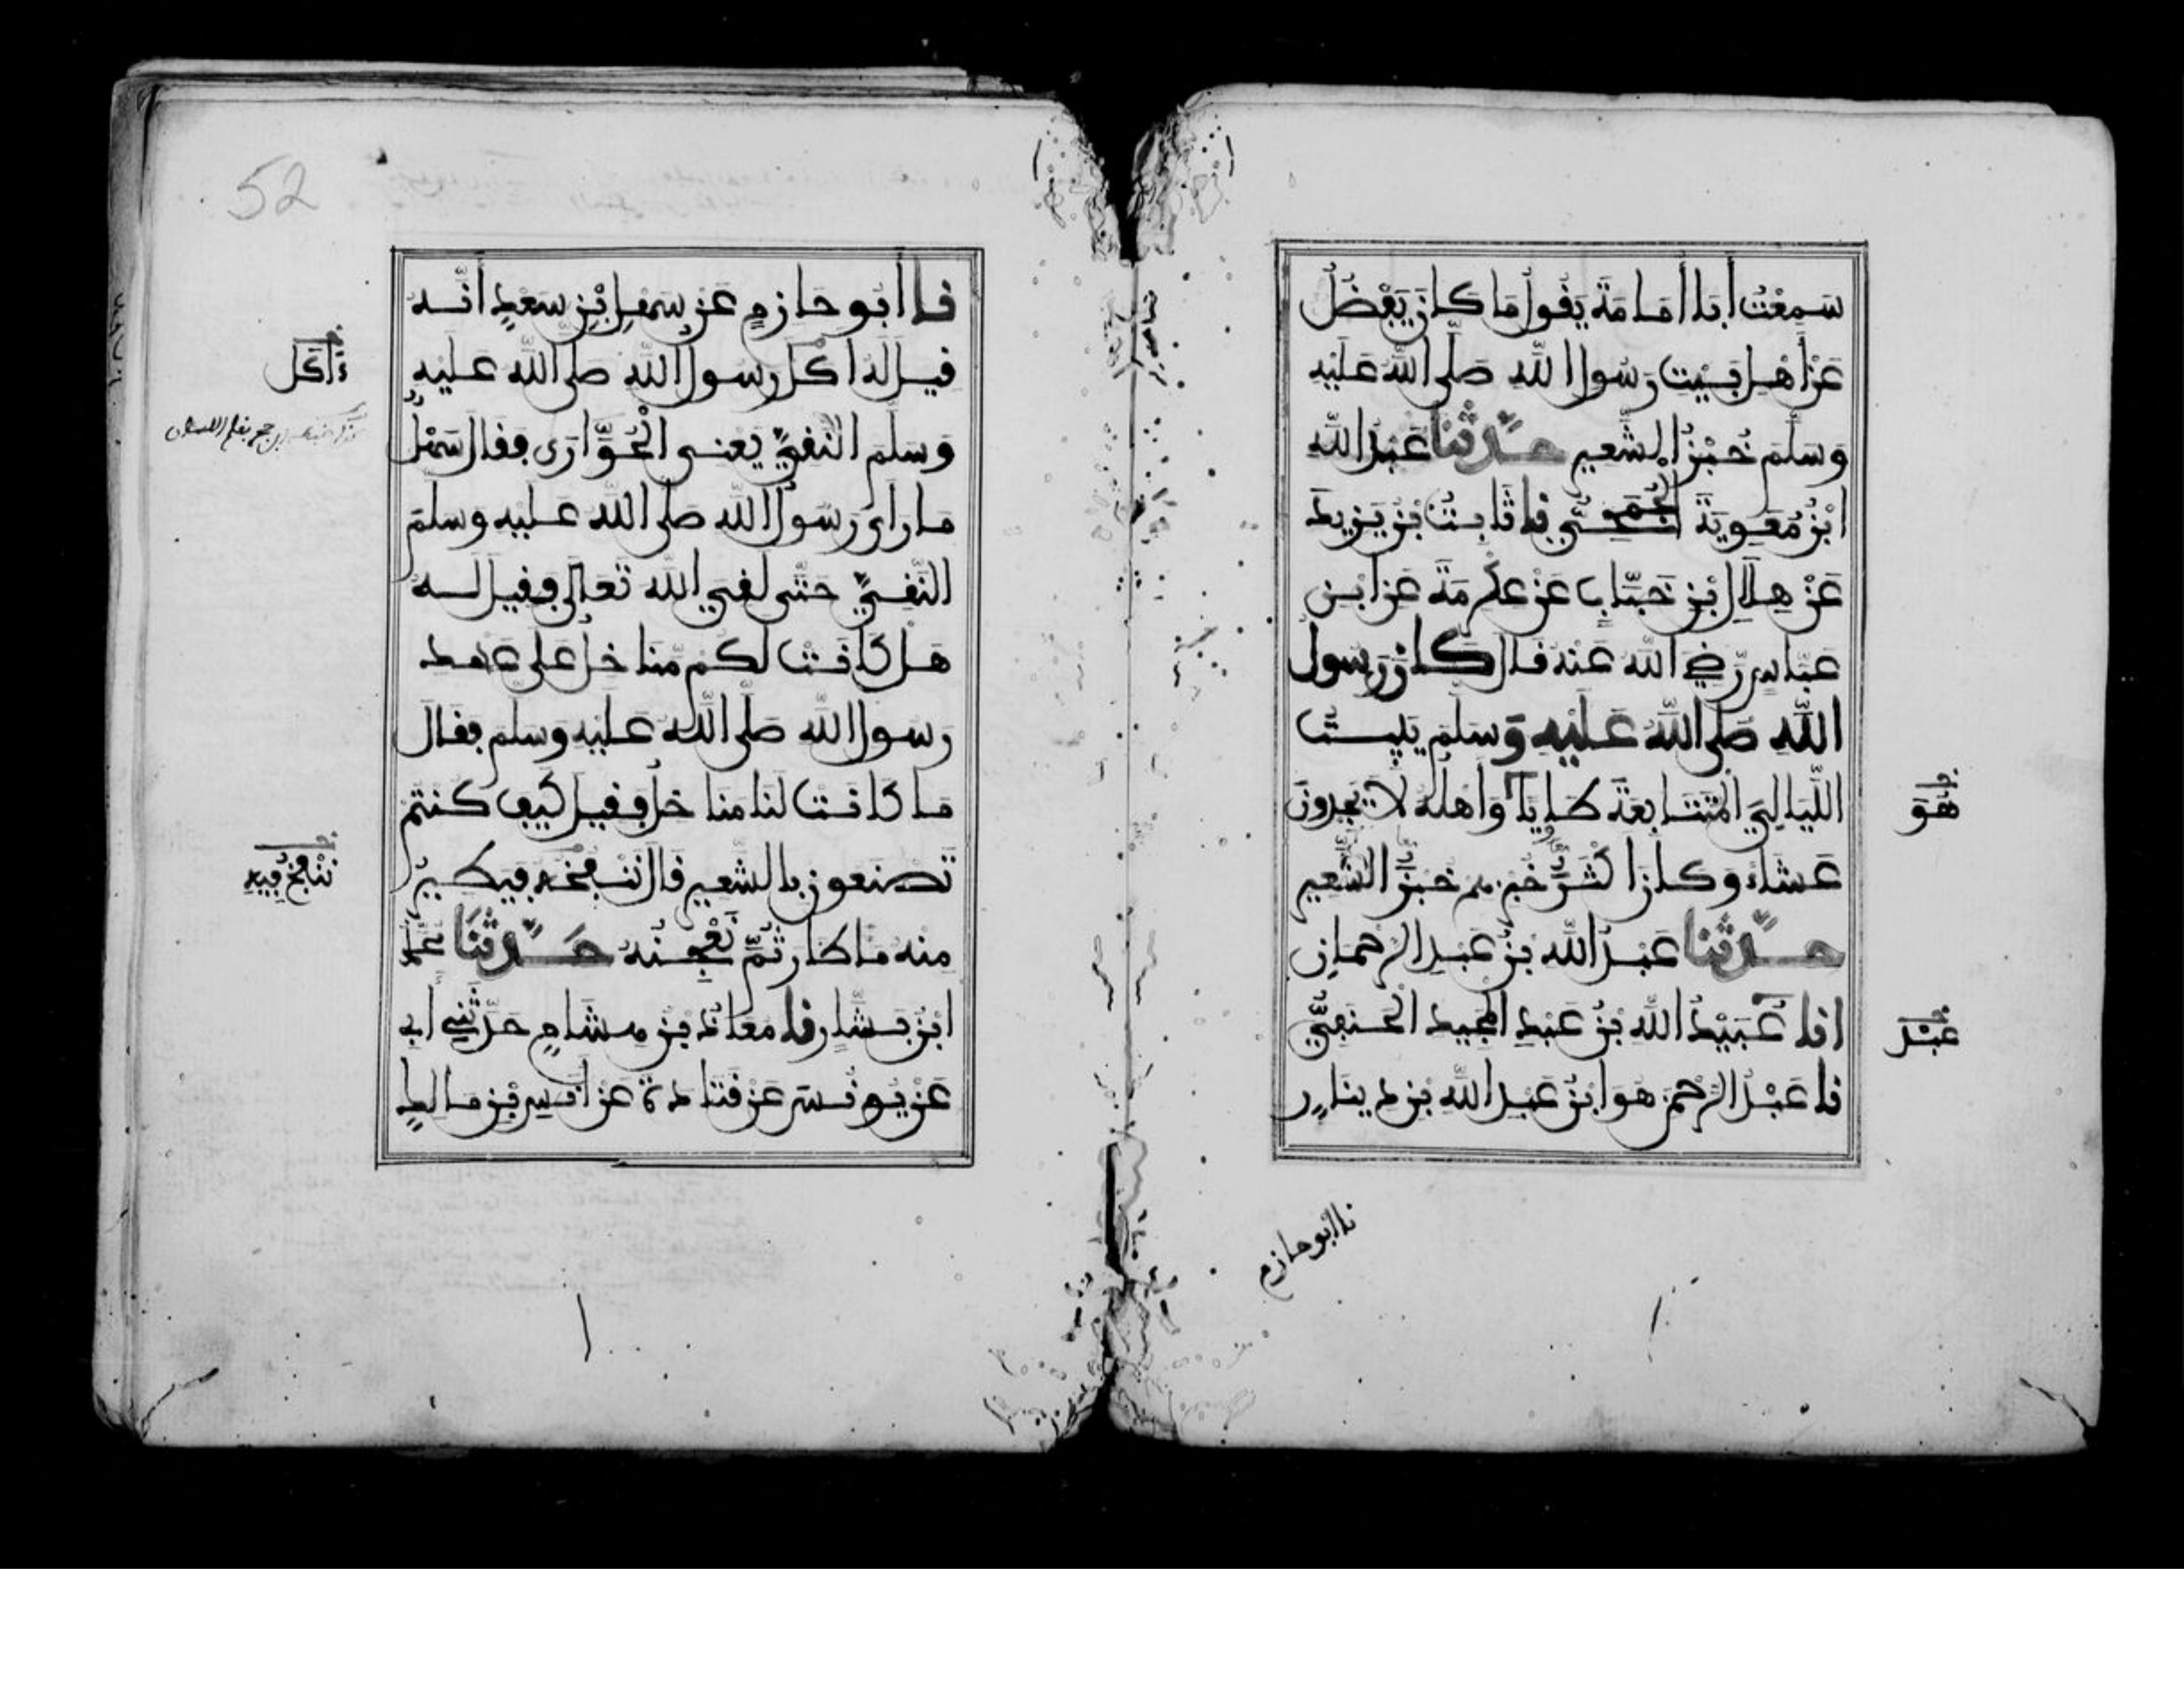 سَمِعْتُ أبَا أُمَامَةَ يَقُولُ مَا كَانَ يَفْضُلُ
عَنْ أَهْلِ بَيْتِ رَسُولِ اللَّهِ صَلَّى اللَّهُ عَلَيْهِ
وَسَلَّمَ خُبْزُ الشَّعِيرِ حَدَّثَنَا عَبْدُ اللَّهِ
ابْنُ مُعَوِيَةَ الجُمَحِيُّ نا ثَابِتُ بْنُ يَزِيدَ
عَنْ هِلَالِ بْنِ خَبَّابٍ عَنْ عِكْرِمَةَ عَنِ ابْنِ
عَبَّاسٍ رَضِيَ اللَّهُ عَنْهُ قَالَ كَانَ رَسُولُ
اللَّهِ صَلَّى اللَّهُ عَلَيْهِ وَسَلَّمَ يَبِيتُ
اللَّيَالِيَ الْمُتَتَابِعَةَ طَاوِيًا وَأَهْلُهُ لَا يَجِدُونَ
هُوَ
عَشَاءً وَكَانَ أَكْثَرُ خُبْزِهِمْ خُبْزَ الشَّعِيرِ
حَدَّثَنَا عَبْدُ اللَّهِ بْنُ عَبْدِ الرَّحْمَانِ
انا عُبَيْدُ اللَّهِ بْنُ عَبْدِ الْمَجِيدِ الْحَنَفِيُّ
عَبْدُ
نا عَبْدُ الرَّحْمَنِ هُوَ ابْنُ عَبْدِ اللَّهِ بْنِ دِينَارٍ
نا أبو حازم
52
نا أَبُو حَازِمٍ عَنْ سَهْلِ ابْنِ سَعْدٍ أَنَّهُ
قِيلَ لَهُ أَكَلَ رَسُولُ اللَّهِ صَلَّى اللَّهُ عَلَيْهِ
ءَأَكَلَ
وَسَلَّمَ النَّقِيَّ يَعْنِي الْحُوَّارَى فَقَالَ سَهْلٌ
مَا رَأَى رَسُولُ اللَّهِ صَلَّى اللَّهُ عَلَيْهِ وَسَلَّمَ
النَّقِيَّ حَتَّى لَقِيَ اللَّهَ تَعَالَى فَقِيلَ لَهُ
هَلْ كَانَتْ لَكُمْ مَّنَاخِلُ عَلَى عَهْدِ
رَسُولِ اللَّهِ صَلَّى اللَّهُ عَلَيْهِ وَسَلَّمَ فَقَالَ
مَا كَانَتْ لَنَا مَنَاخِلُ فَقِيلَ كَيْفَ كُنْتُمْ
تَصْنَعُونَ بِالشَّعِيرِ قَالَ نَنْفُخُهُ فَيَطِيرُ
نَنْفُخُ فِيهِ
مِنْهُ مَا طَارَ ثُمَّ نَعْجِنُهُ حَدَّثَنَا مُحَمَّدُ
ابْنُ بَشَّارٍ نا مُعَاذُ بْنُ هِشَامٍ حَدَّثَنِي أَبِي
عَنْ يُونُسَ عَنْ قَتَادَةَ عَنْ أَنَسِ بْنِ مَالِكٍ